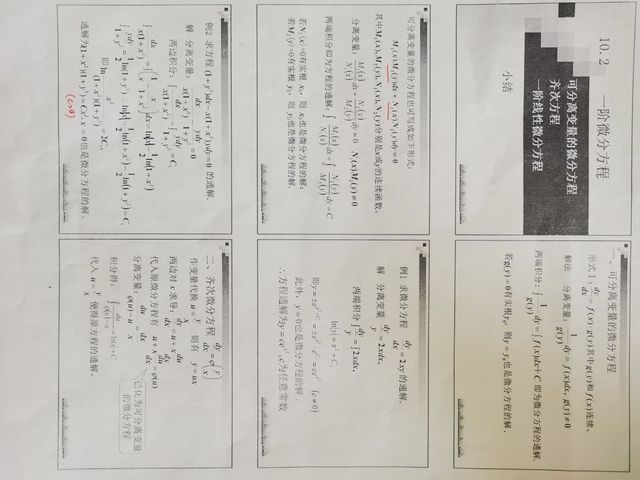 10.2 一阶微分方程
可分离变量的微分方程
齐次方程
一阶线性微分方程
小结
一、可分离变量的微分方程
形式1: dy/dx = f(x)·g(y)其中g(y)和f(x)连续、
解法: 分离变量: 1/g(y) dy = f(x)dx, g(y)≠0
两端积分: ∫ 1/g(y) dy = ∫ f(x)dx + C 即为微分方程的通解.
若g(y)=0有实根y₀, 则y=y₀也是微分方程的解、
可分离变量的微分方程也可写成如下形式:
M₁(x)M₂(y)dx + N₁(x)N₂(y)dy = 0
其中M₁(x),M₂(y),N₁(x),N₂(y)分别是x或y的连续函数、
分离变量: M₁(x)/N₁(x) dx + N₂(y)/M₂(y) dy = 0 N₁(x)M₂(y)≠0
两端积分即为方程的通解: ∫ M₁(x)/N₁(x) dx + ∫ N₂(y)/M₂(y) dy = C
若N₁(x)=0有实根 x₀, 则 x₀也是微分方程的解;
若M₂(y)=0有实根 y₀, 则 y₀也是微分方程的解、
例1 求微分方程 dy/dx = 2xy 的通解、
解 分离变量 dy/y = 2xdx,
两端积分 ∫ dy/y = ∫ 2xdx,
ln|y| = x² + C₁
此外, y=0也是微分方程的解、
∴ 方程通解为y=ce^(x²), c为任意常数
例2 求方程 (1+y²)dx−x(1+x²)ydy=0 的通解、
解 分离变量: dx/x(1+x²) − ydy/1+y² = 0
两边积分: ∫ dx/x(1+x²) − ∫ ydy/1+y² = C₁
∫ dx/x(1+x²) = ∫(1/x − x/1+x²)dx = ln|x| − 1/2 ln(1+x²)
∫ ydy/1+y² = 1/2 ln(1+y²) ∴ ln|x| − 1/2 ln(1+x²) − 1/2 ln(1+y²) = C₁
通解为(1+x²)(1+y²)=Cx². x=0也是微分方程的解、
(C>0)
二、齐次微分方程 dy/dx = φ(y/x)
作变量代换 u = y/x 则有 y = ux
两边对 x 求导: dy/dx = u + x du/dx
代入原微分方程有 u + x du/dx = φ(u)
分离变量: du/φ(u)−u = dx/x
已化为可分离变量
的微分方程
积分得: ∫ du/φ(u)−u = ln x + C
代入 u = y/x 便得原方程的通解、